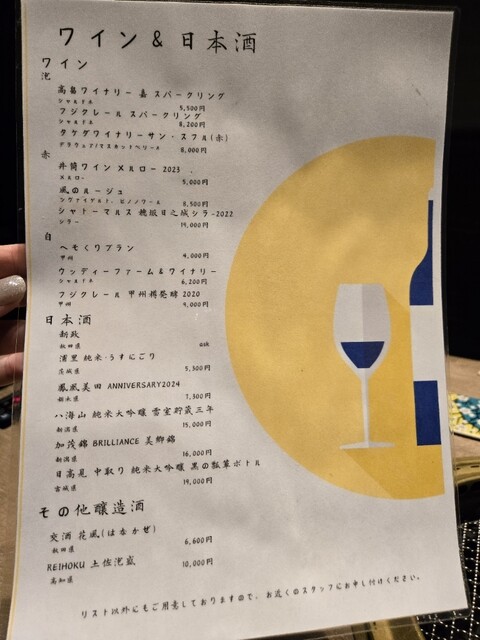 ワイン & 日本酒
ワイン
泡
高畠ワイナリー 嘉 スパークリング
シャルドネ
5,500円
フジクレール スパークリング
シャルドネ
8,200円
タケダワイナリーサン・スフル(赤)
デラウェア/マスカットベーリーA
8,000円
赤
井筒ワイン メルロー 2023
メルロー
5,000円
風のルージュ
ツヴァイゲルト、ピノノワール
8,500円
シャトーマルス 穂坂日之城シラー2022
シラー
14,000円
白
へそくりブラン
甲州
4,000円
ウッディーファーム&ワイナリー
シャルドネ
6,200円
フジクレール 甲州樽発酵 2020
甲州
9,000円
日本酒
新政
秋田県
ask
濱里 純米・うすにごり
茨城県
5,300円
鳳凰美田 ANNIVERSARY2024
栃木県
7,300円
八海山 純米大吟醸 雪室貯蔵三年
新潟県
15,000円
加茂錦 BRILLIANCE 美郷錦
新潟県
16,000円
日高見 中取り 純米大吟醸 黒の瓢箪ボトル
宮城県
19,000円
その他醸造酒
交酒 花風(はなかぜ)
秋田県
6,600円
REIHOKU 土佐泡嵐
高知県
10,000円
リスト以外にもご用意しておりますので、お近くのスタッフにお申し付けください。